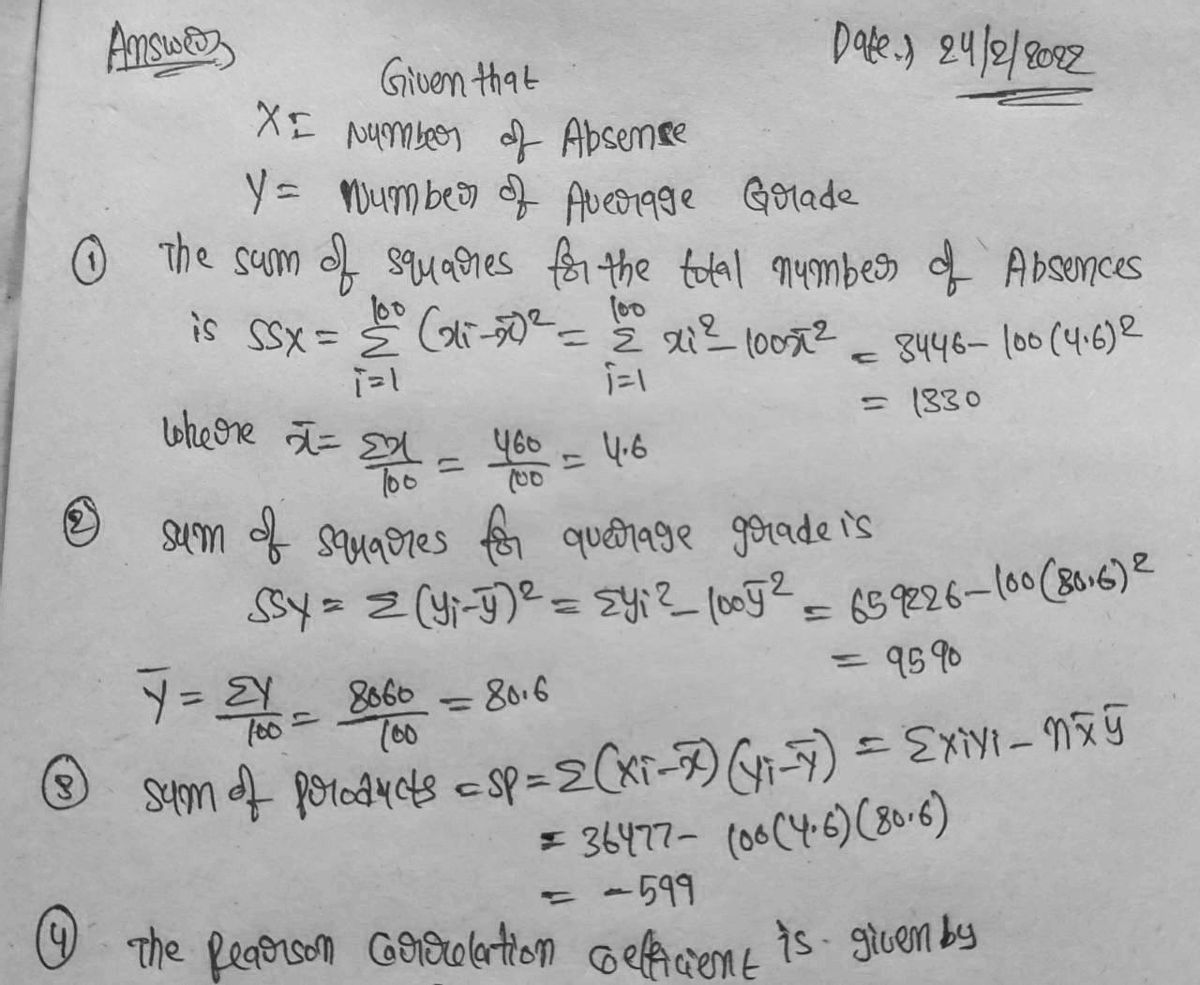 Answer
Date:) 24/2/2022
Given that
X = Number of Absense
Y = Number of Average Grade
① The sum of squares for the total number of Absences
is SSX = Σ_{i=1}^{100} (xi-x̄)² = Σ_{i=1}^{100} xi² - 100x̄² = 3446 - 100(4.6)²
= 1330
where x̄ = Σx/100 = 460/100 = 4.6
② sum of squares for average grade is
SSY = Σ(yi-ȳ)² = Σyi² - 100ȳ² = 659226 - 100(80.6)²
= 9590
Ȳ = ΣY/100 = 8060/100 = 80.6
③ sum of products = SP = Σ(xi-x̄)(yi-ȳ) = Σxiyi - nx̄ȳ
= 36477 - 100(4.6)(80.6)
= -599
④ The Pearson Correlation coefficient is given by